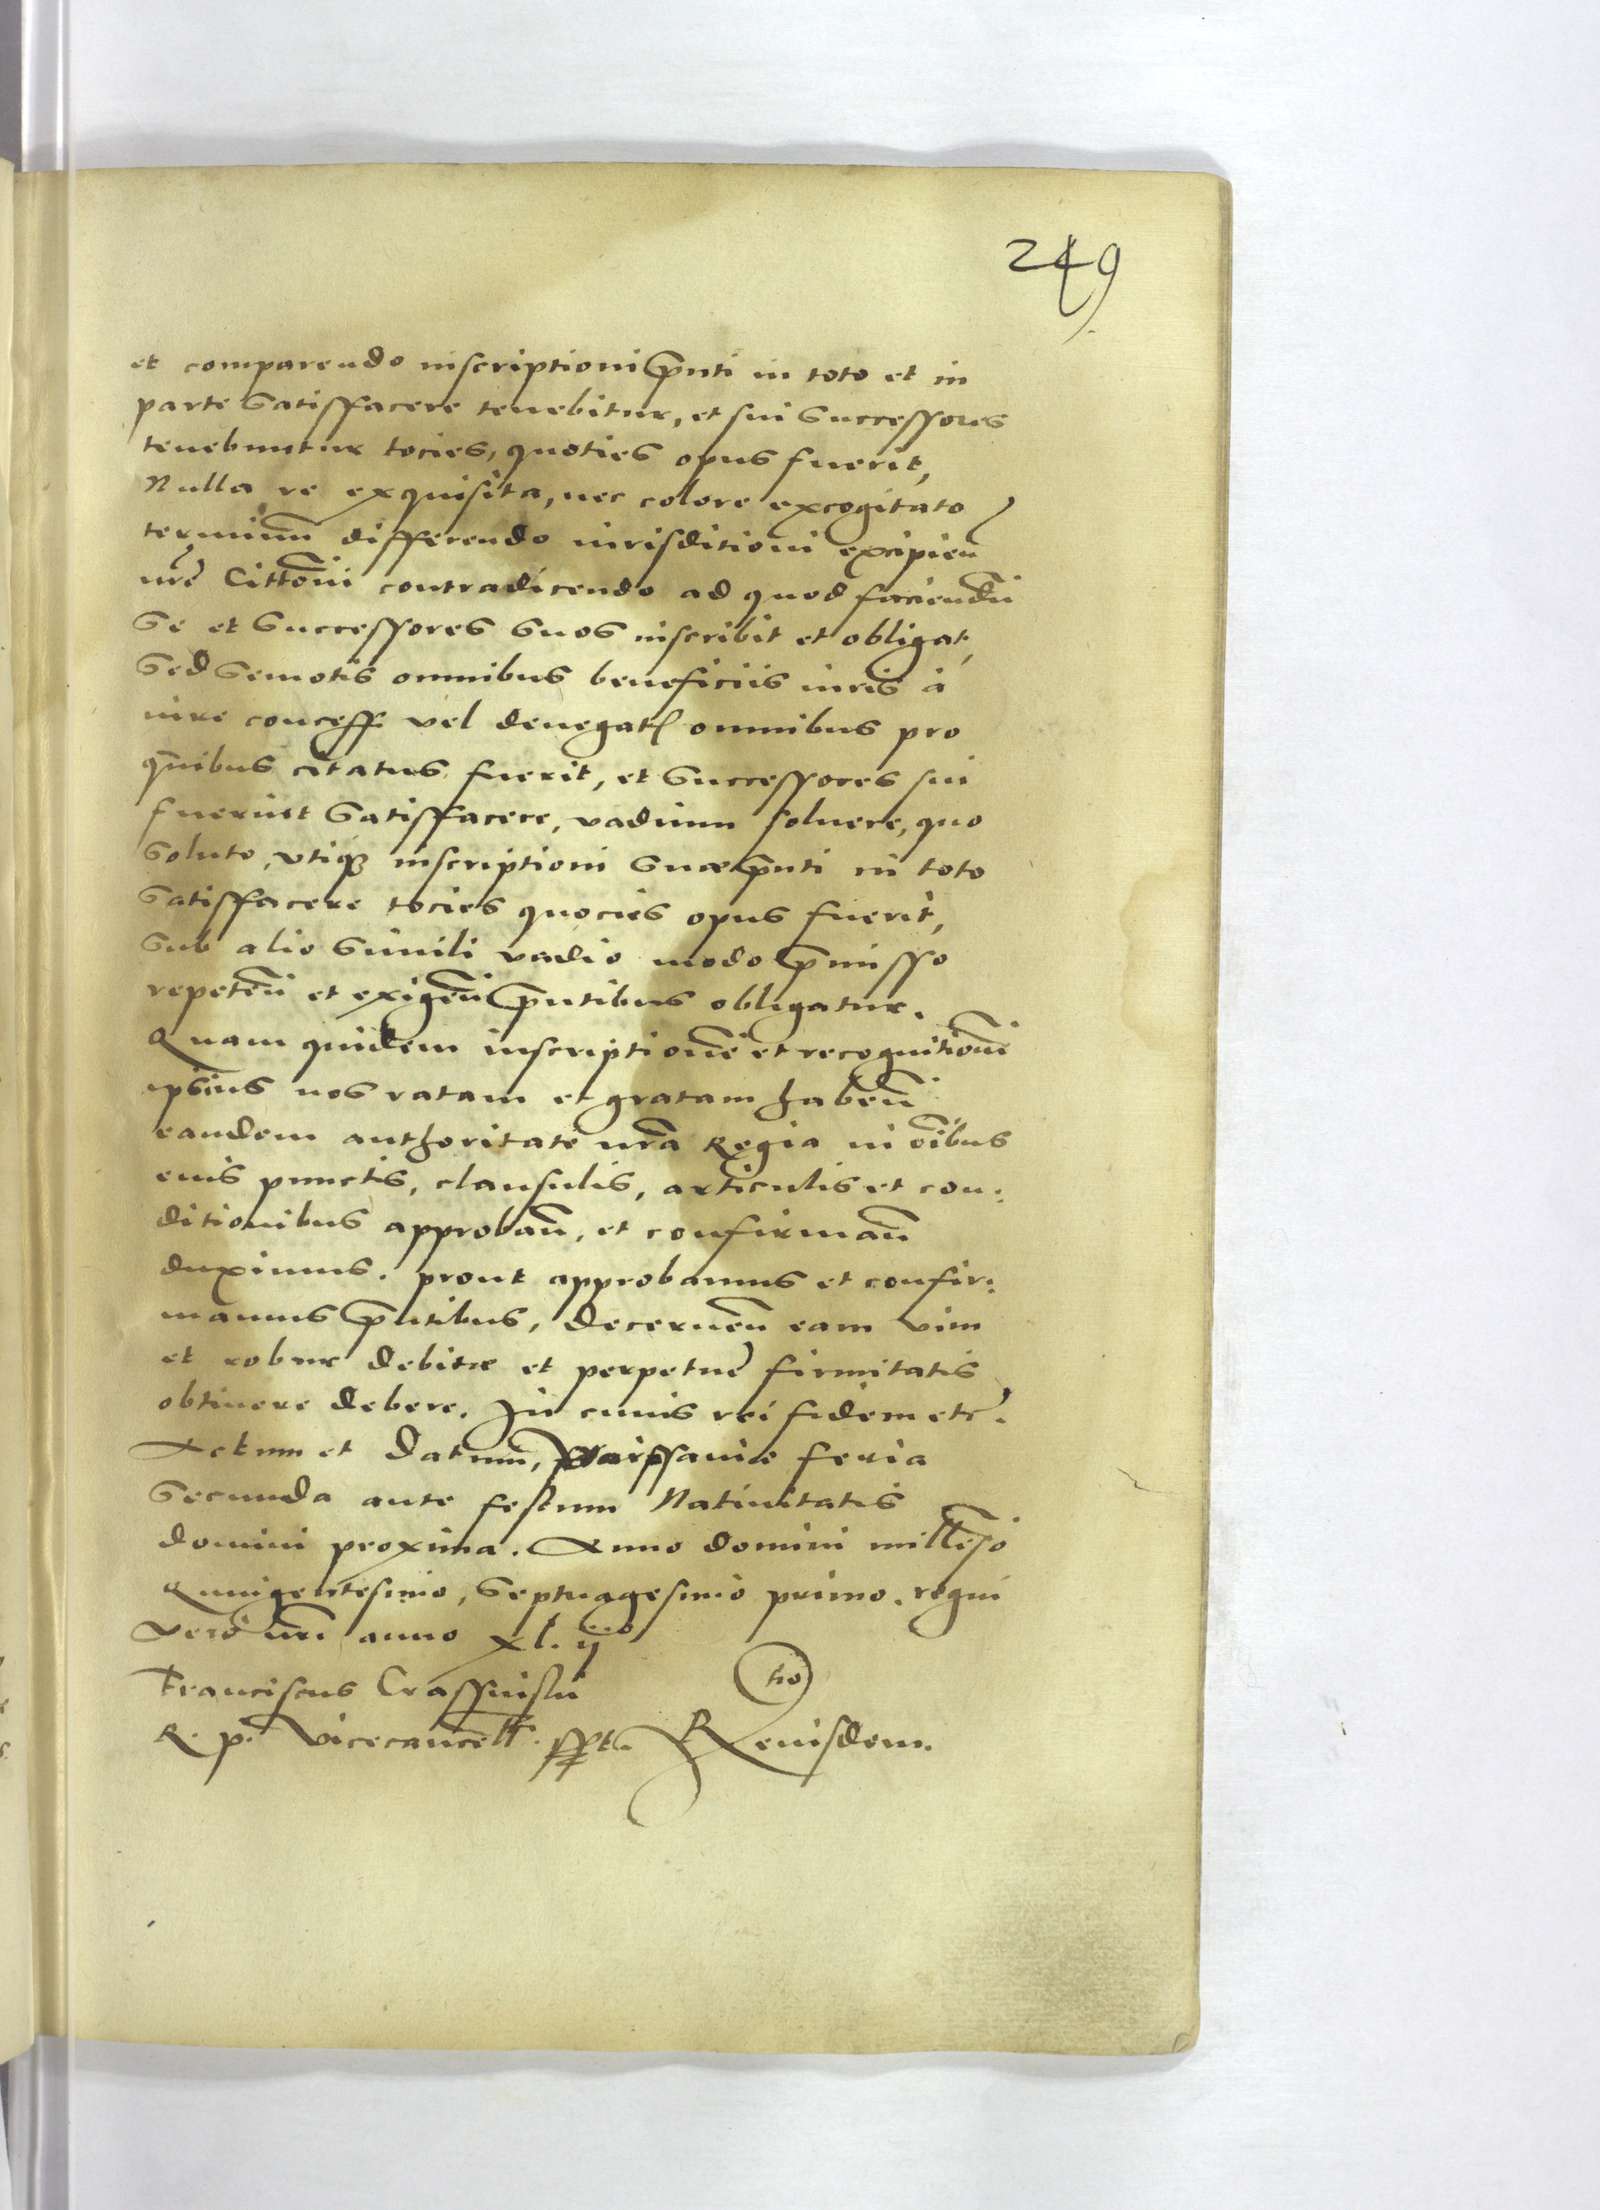 249
et comparendo inscriptioni pñti in toto et in
parte satisfacere tenebitur, et sui successores
tenebuntur tocies, quoties opus fuerit,
Nulla re exquisita, nec colore excogitato
terminũ differendo iurisditioni excipien̄
nrẽ Citt̃oni contradicendo ad quod faciendũ
se et successores suos inscribit et obligat,
sed semotis omnibus beneficiis iuris à
iure concess. vel denegat. omnibus pro
quibus citatus fuerit, et successores sui
fuerint satisfacere, vadium soluere, quo
soluto, vtiq3 inscriptioni suae pñti in toto
satisfacere tocies quocies opus fuerit,
sub alio simili vadio modo p̃misso
repeten̄ et exigen̄ pñtibus obligatur.
Quam quidem inscriptionẽ et recognitionẽ
ipsius nos ratam et gratam haben̄
eandem authoritate nrã Regia in oĩbus
eius punctis, clausulis, articulis et con:
ditionibus approban̄, et confirman̄
duximus. prout approbamus et confir:
mamus pñtibus, decernen̄ eam vim
et robur debitae et perpetuę firmitatis
obtinere debere. In cuius rei fidem etc.
Actum et Datum, Warssauiae feria
secunda ante festum Natiuitatis
domini proxima. Anno domini millẽso
Quingentesimo, septuagesimo primo. regni
vero nri. anno xl. ij°
Franciscus Crassinski
R. p. vicecancell. sspt. R eiusdem.
tio